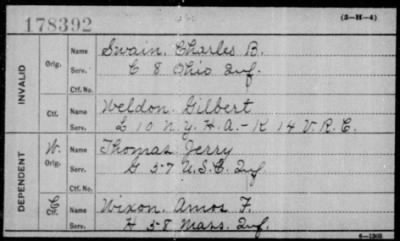 178392
(3-H-4)
INVALID
Orig.
Name Swain, Charles B.
Serv. C 8 Ohio Inf.
Ctf. No.
Ctf.
Name Weldon Gilbert
Serv. L 10 N.Y.H.A. - K 14 V.R.C.
DEPENDENT
W.
Orig.
Name Thomas Jerry
Serv. G 57 U.S.C. Inf
Ctf. No.
C
Ctf.
Name Wixon, Amos F.
Serv. H 58 Mass. Inf.